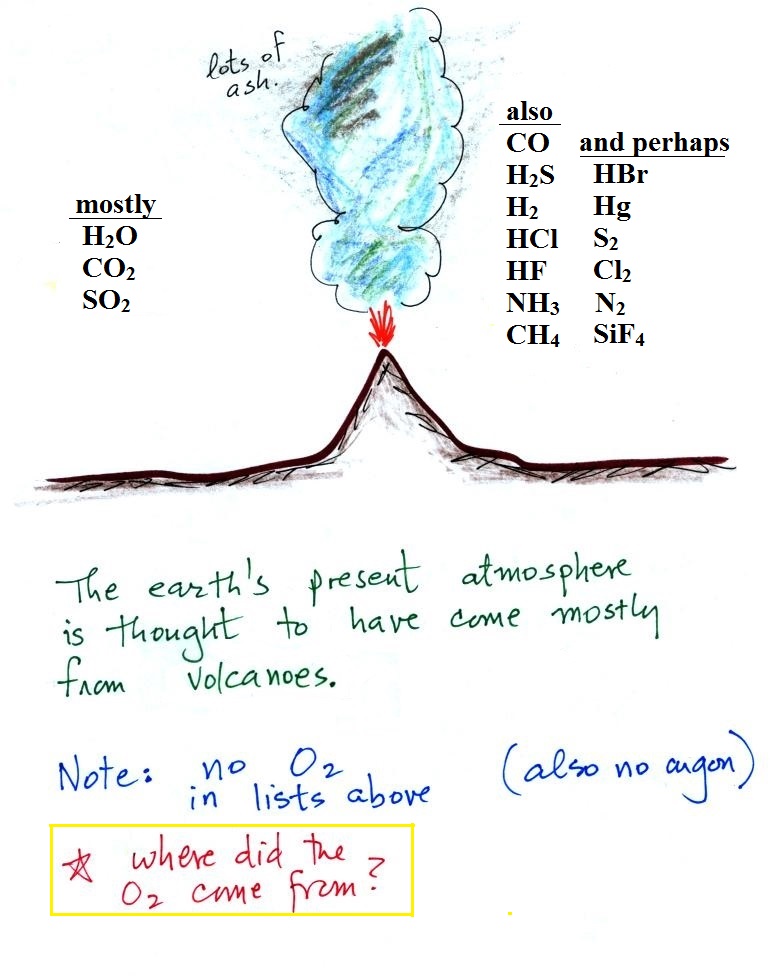 lots of
ash.
mostly
H₂O
CO₂
SO₂
also
CO
H₂S
H₂
HCl
HF
NH₃
CH₄
and perhaps
HBr
Hg
S₂
Cl₂
N₂
SiF₄
The earth's present atmosphere
is thought to have come mostly
from volcanoes.
Note: no O₂
in lists above
(also no argon)
☆ where did the
O₂ come from?